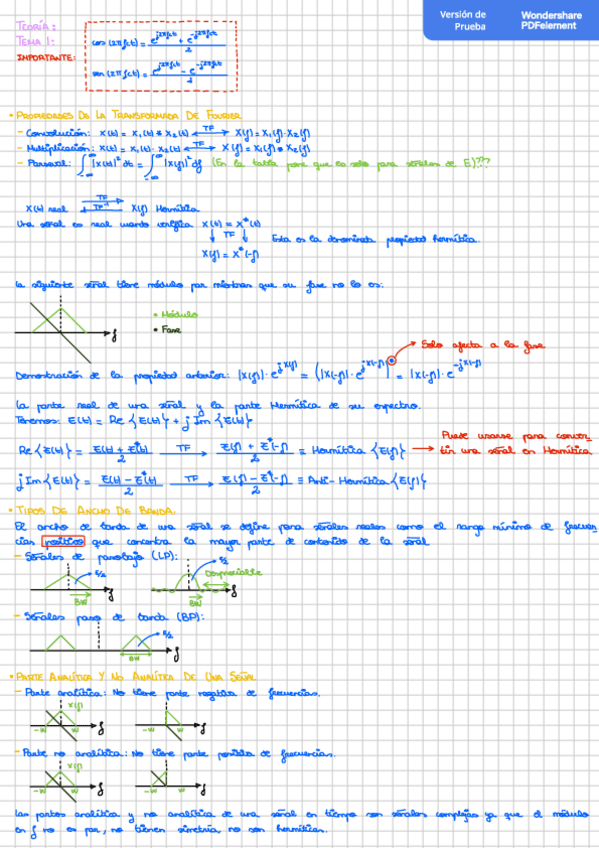 Versión de Prueba
Wondershare PDFelement
TEORÍA:
TEMA 1:
IMPORTANTE:
cos (2πfct) = e^{j2πfct} + e^{-j2πfct} / 2
sen (2πfct) = e^{j2πfct} - e^{-j2πfct} /
• PROPIEDADES DE LA TRANSFORMADA DE FOURIER
- Convolución: X(t) = X₁(t) * X₂(t) ⟷TF X(f) = X₁(f)·X₂(f)
- Multiplicación: X(t) = X₁(t)·X₂(t) ⟷TF X(f) = X₁(f) * X₂(f)
- Parseval: ∫_{-∞}^{∞} |X(t)|² dt = ∫_{-∞}^{∞} |X(f)|² df (En la tabla pone que es solo para señales de E)???
X(t) real TF TF⁻¹ X(f) Hermítica
Una señal es real cuando verifica X(t) = X*(t)
↓ TF ↓ Esta es la denominada propiedad hermítica.
X(f) = X*(-f)
La siguiente señal tiene módulo par mientras que su fase no lo es:
• Módulo
• Fase
f
Solo afecta a la fase
Demostración de la propiedad anterior: |X(f)|·e^{jX(f)} = (|X(-f)|·e^{jX(-f)})* = |X(-f)|·e^{-jX(-f)}
La parte real de una señal y la parte Hermítica de su espectro.
Tenemos: E(t) = Re {E(t)} + j Im {E(t)}
Re {E(t)} = E(t) + E*(t) / 2 TF→ E(f) + E*(-f) / 2 ≡ Hermítica {E(f)} → Puede usarse para conver_
tir una señal en Hermítica
j Im {E(t)} = E(t) - E*(t) / 2 TF→ E(f) - E*(-f) / 2 ≡ Anti-Hermítica {E(f)}
• TIPOS DE ANCHO DE BANDA.
El ancho de banda de una señal se define para señales reales como el rango mínimo de frecuen_
cias positivo que concentra la mayor parte de contenido de la señal
- Señales de paso bajo (LP):
E/2
BW
f
E/2
Despreciable
BW
f
- Señales paso de banda (BP):
E/2
BW
f
• PARTE ANALÍTICA Y NO ANALÍTICA DE UNA SEÑAL
- Parte analítica: No tiene parte negativa de frecuencias.
X(f)
-W W f
-W W f
- Parte no analítica: No tiene parte positiva de frecuencias.
X(f)
-W W f
-W W f
Las partes analítica y no analítica de una señal en tiempo son señales complejas ya que el módulo
en f no es par, no tienen simetría no son hermíticas.